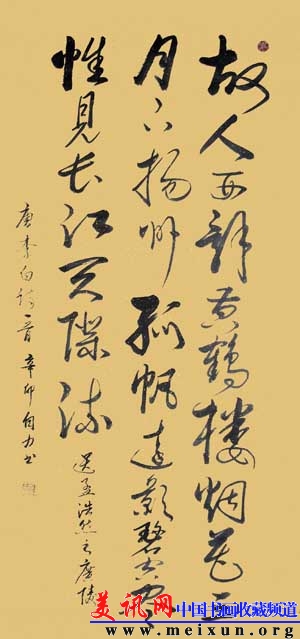 故人西辞黄鶴樓烟花三
月下揚州孤帆远影碧空尽
惟見长江天际流
送孟浩然之廣陵
唐李白诗一首 辛卯自力书
美讯网 中国书画收藏频道
www.meixun.org